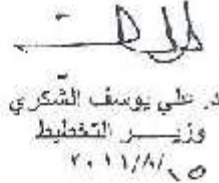 د. علي يوسف الشكري
وزيـــر التخطيط
٢٠١١/٨/٢٥